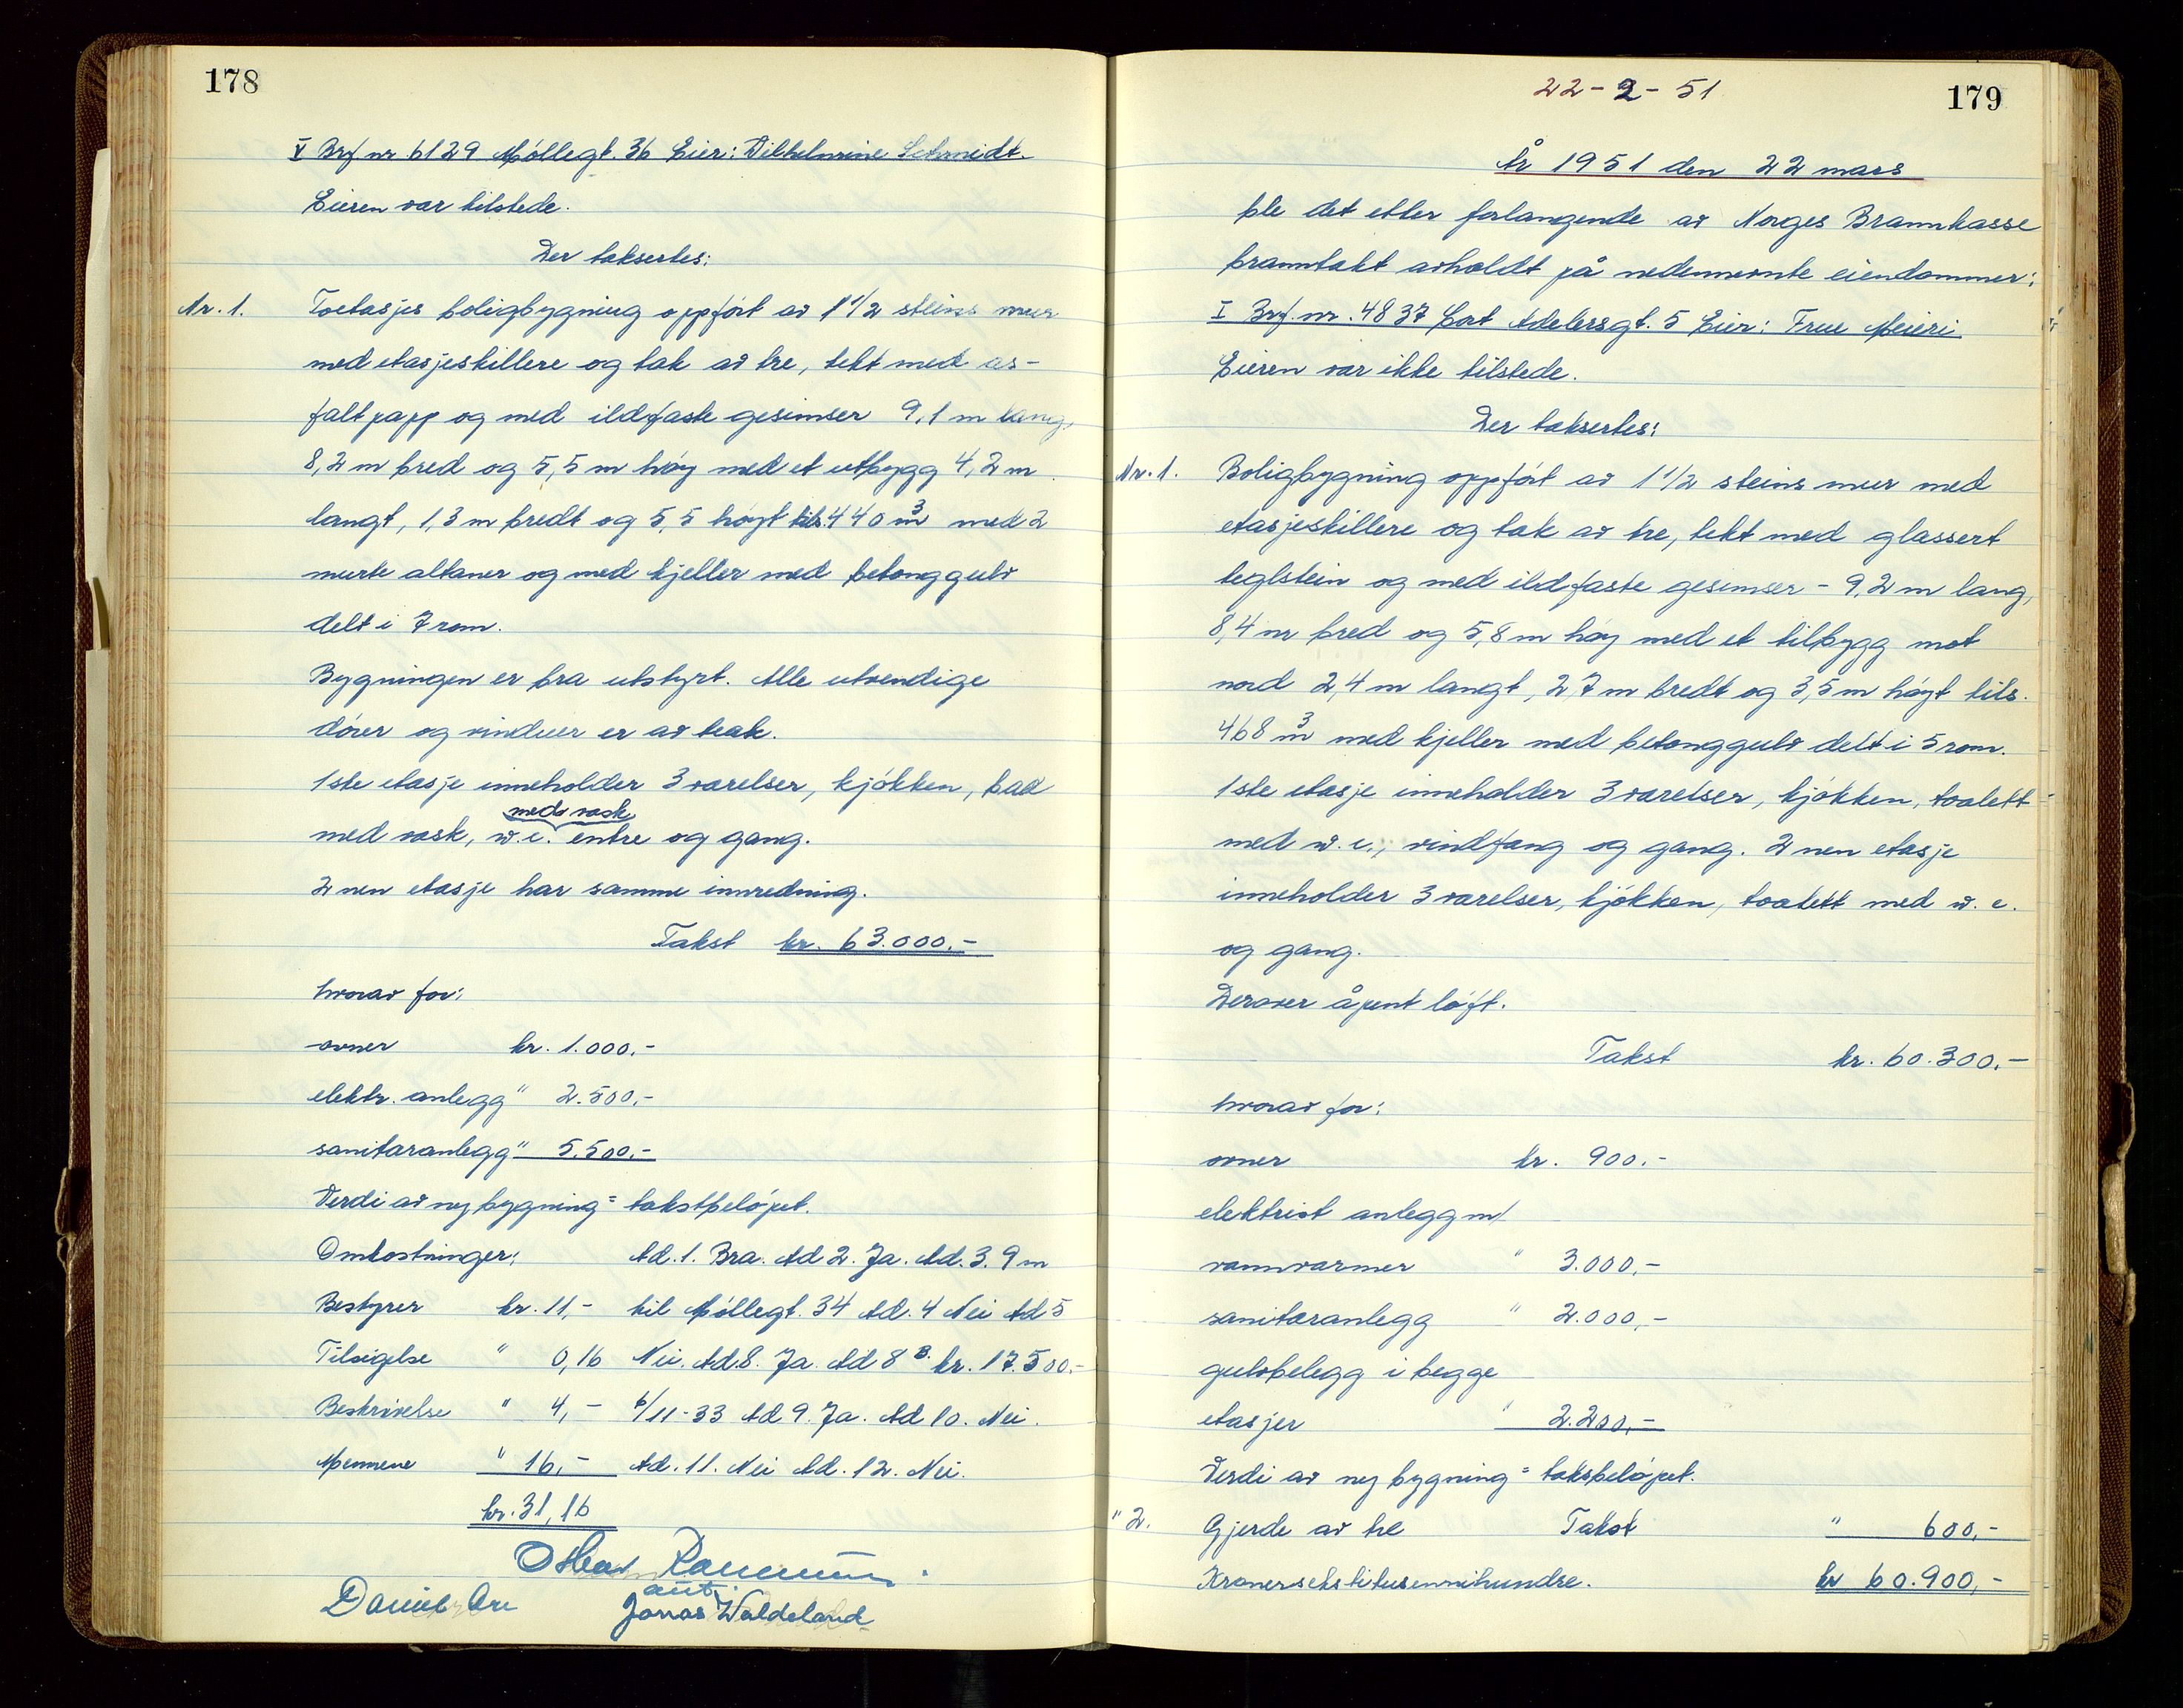 178
V Brf nr. 6129 Møllegt. 36 Eier: Vilhelmine Schmidt.
Eieren var tilstede.
Der takserтes:
Nr. 1. Toetasjes boligbygning oppført av 1 1/2 steins mur
med etasjeskillere og tak av tre, tekt med as-
falt papp og med ildfaste gesimser 9,1 m lang,
8,2 m bred og 5,5 m høy med et utbygg 4,2 m
langt, 1,3 m bredt og 5,5 høyt tils. 440 m³ med 2
murte altaner og med kjeller med betonggulv
delt i 7 rom.
Bygningen er bra utstyrt. Alle utvendige
dører og vinduer er av teak.
1ste etasje inneholder 3 værelser, kjøkken, bad
med vask
med vask, w.c. entre og gang.
2nen etasje har samme innredning.
Takst kr. 63.000.-
hvorav for:
ovner kr. 1.000.-
elektr. anlegg " 2.500.-
sanitæranlegg " 5.500.-
Verdi av ny bygning = takstbeløpet.
Omkostninger: Ad. 1. Bra. Ad 2. Ja. Ad. 3. 9 m
Bestyrer kr. 11,- til Møllegt. 34 Ad. 4 Nei Ad 5
Tilsigelse " 0,16 Nei. Ad 8. Ja. Ad 8 B. kr. 17.500.-
Beskrivelse " 4,- 6/11-33 Ad 9. Ja. Ad 10. Nei.
Mennene " 16,- Ad. 11. Nei Ad. 12. Nei.
kr. 31,16
Jonas Waldeland
Daniel
22-2-51
179
År 1951 den 22 mars
ble det etter forlangende av Norges Brannkasse
branntakt avholdt på nedennevnte eiendommer:
I Brf. nr. 4837 Cort Adelersgt. 5 Eier: Frue Meieri.
Eieren var ikke tilstede.
Der taksertes:
Nr. 1. Boligbygning oppført av 1 1/2 steins mur med
etasjeskillere og tak av tre, tekt med glassert
teglstein og med ildfaste gesimser - 9,2 m lang,
8,4 m bred og 5,8 m høy med et tilbygg mot
nord 2,4 m langt, 2,7 m bredt og 3,5 m høyt tils.
468 m³ med kjeller med betonggulv delt i 5 rom.
1ste etasje inneholder 3 værelser, kjøkken, toalett
med w.c., vindfang og gang. 2nen etasje
inneholder 3 værelser, kjøkken, toalett med w.c.
og gang.
Derover åpent loft.
Takst kr. 60.300.-
hvorav for:
ovner kr. 900.-
elektrist anlegg m/
vannvarmer " 3.000,-
sanitæranlegg " 2.000,-
gulvbelegg i begge
etasjer " 2.200,-
Verdi av ny bygning = taksbeløpet.
" 2. Gjerde av tre Takst " 600,-
Kronersekstitusennihundre. kr 60.900,-